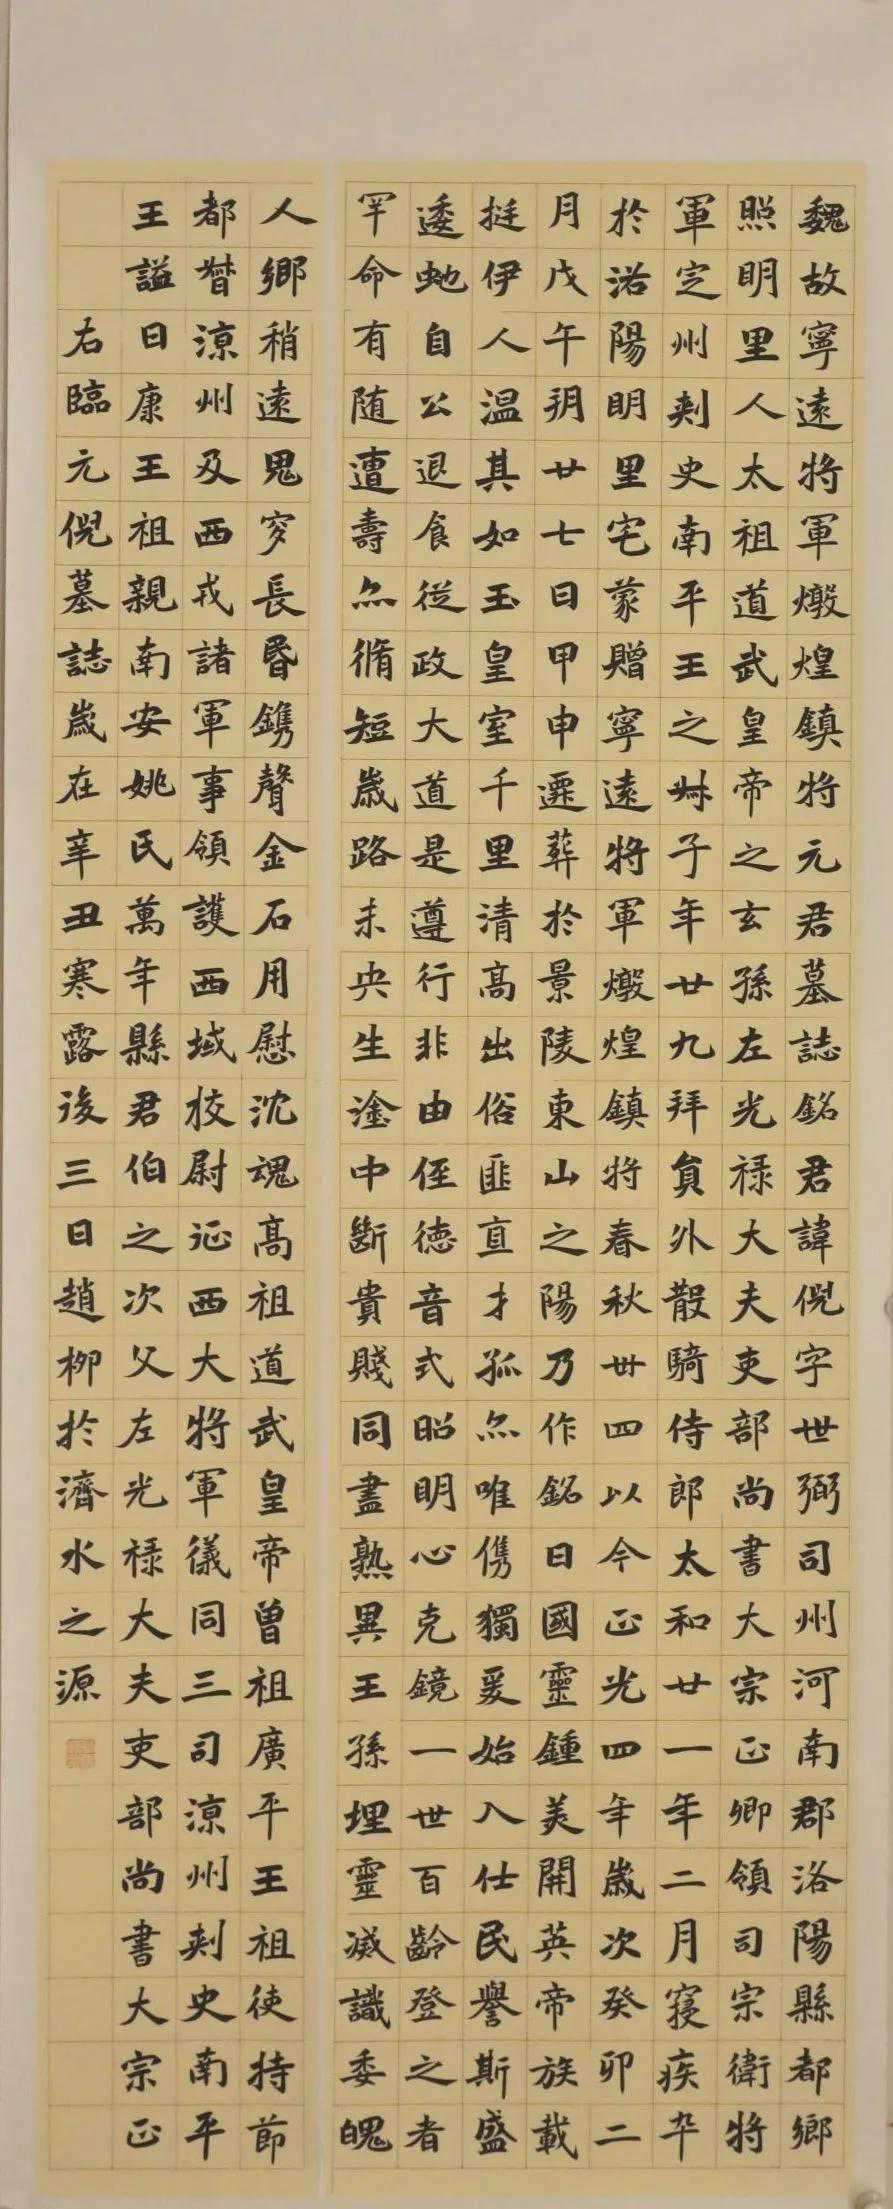 魏故寧遠將軍燉煌鎮將元君墓誌銘君諱倪字世弼司州河南郡洛陽縣都鄉
照明里人太祖道武皇帝之玄孫左光禄大夫吏部尚書大宗正卿領司宗衛將
軍定州刺史南平王之叔子年廿九拜員外散騎侍郎太和廿一年二月寑疾卒
於洛陽明里宅蒙贈寧遠將軍燉煌鎮將春秋卌四以今正光四年歲次癸卯二
月戊午朔廿七日甲申遷葬於景陵東山之陽乃作銘曰國靈鍾美開英帝族載
挺伊人温其如玉皇室千里清高出俗匪直才孤亦唯儁獨爰始入仕民譽斯盛
逶虵自公退食從政大道是遵行非由侄德音式昭明心克鏡一世百齡登之者
罕命有随遭壽亦脩短歲路未央生淦中斷貴賤同盡熟異王孫埋靈滅識委魄
人鄉稍遠鬼穸長昏鐫聲金石用慰沈魂高祖道武皇帝曾祖廣平王祖使持節
都督涼州及西戎諸軍事領護西域校尉征西大將軍儀同三司涼州刺史南平
王謚曰康王祖親南安姚氏萬年縣君伯之次父左光禄大夫吏部尚書大宗正
右臨元倪墓誌歲在辛丑寒露後三日趙柳於濟水之源